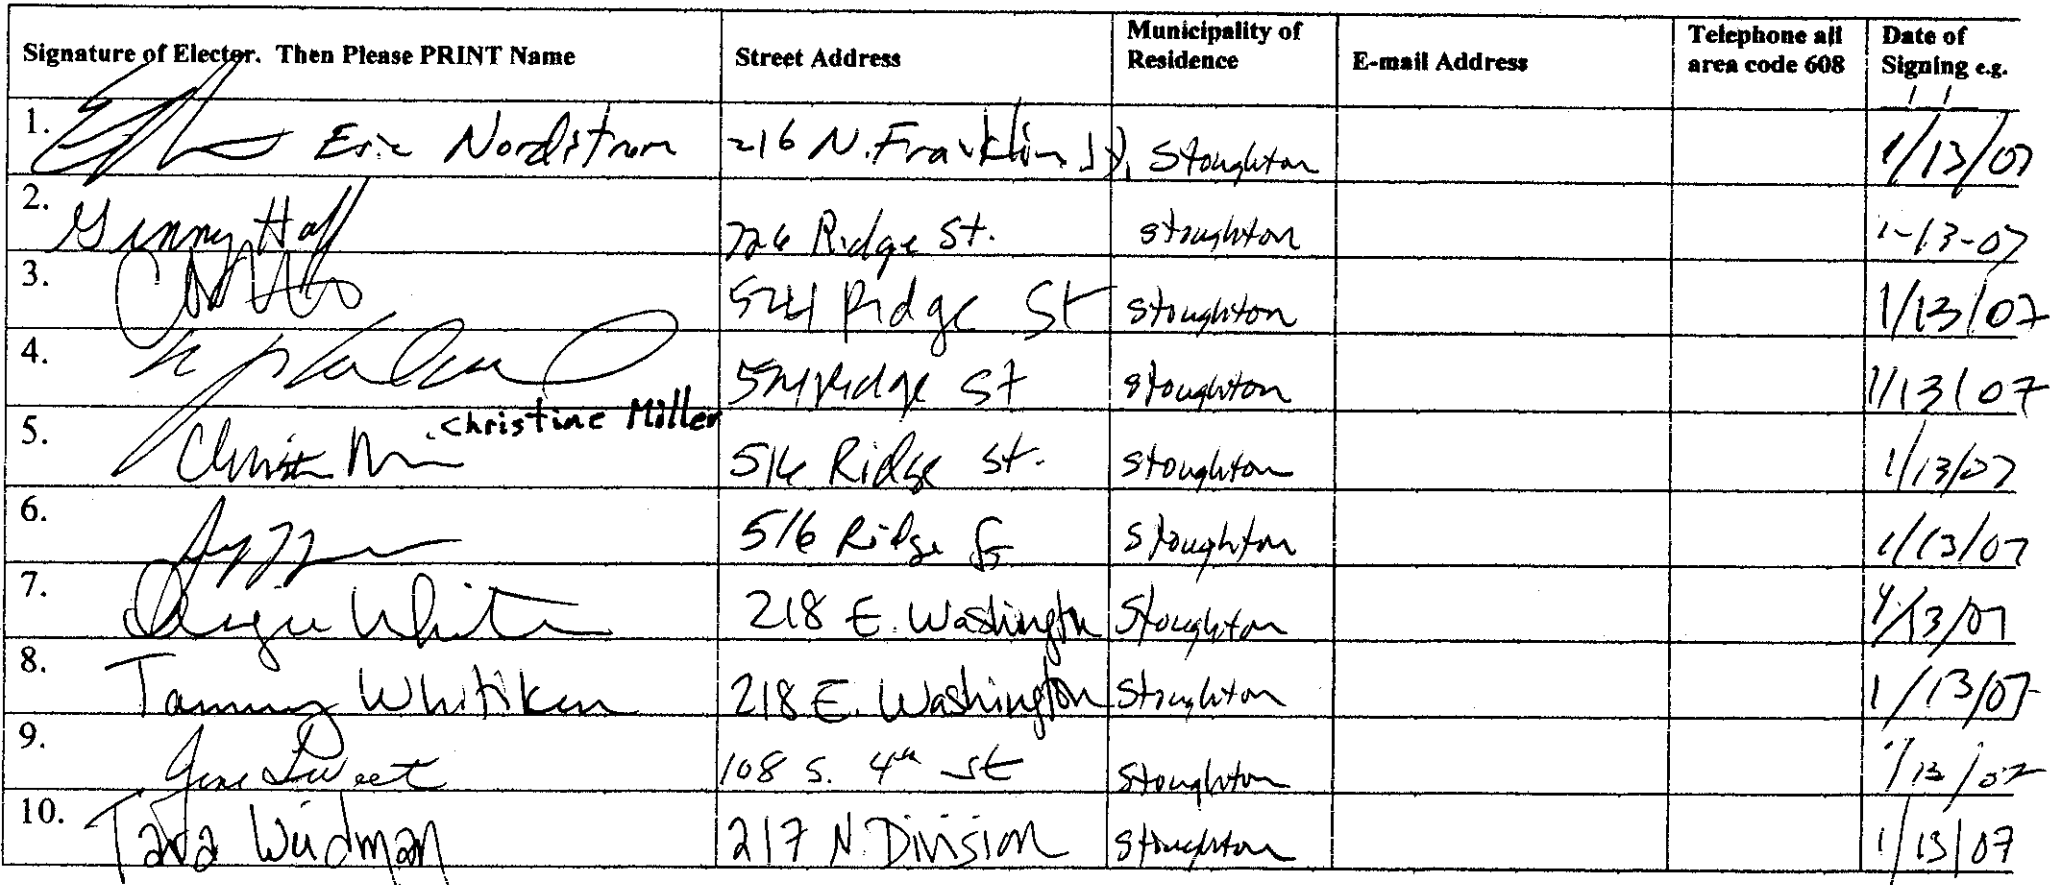 Signature of Elector. Then Please PRINT Name Street Address Municipality of Residence E-mail Address Telephone all area code 608 Date of Signing e.g.
/ /
1. Eric Nordstrom 216 N. Franklin St, Stoughton 1/13/07
2. Ginny Hall 726 Ridge St. Stoughton 1-13-07
3. 524 Ridge St Stoughton 1/13/07
4. 524 Ridge St Stoughton 1/13/07
Christine Miller
5. 516 Ridge St. Stoughton 1/13/07
6. 516 Ridge St Stoughton 1/13/07
7. 218 E. Washington Stoughton 1/13/07
8. Tammy Whitiken 218 E. Washington Stoughton 1/13/07
9. Sweet 108 S. 4th St Stoughton 1/13/07
10. Tara Weidman 217 N. Division Stoughton 1/13/07